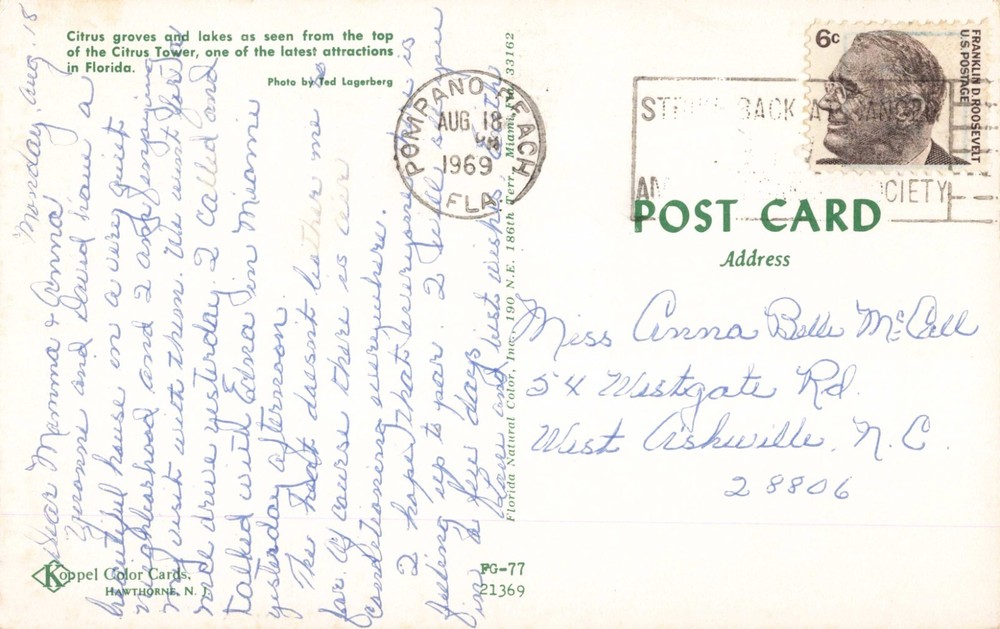 Citrus groves and lakes as seen from the top
of the Citrus Tower, one of the latest attractions
in Florida.
Photo by Ted Lagerberg
Monday Aug. 18
Dear Mamma & Anna
Yvonne and David have a
beautiful house in a very quiet
neighborhood and I am enjoying
my visit with them. We went for a
nice drive yesterday. I called and
talked with Edna in Miami
yesterday afternoon.
The heat doesn't bother me so
far. Of course there is air
conditioning everywhere.
I hope that everyone there is
feeling up to par. I will see you
in a few days
Love and best wishes
Koppel Color Cards,
HAWTHORNE, N. J.
FG-77
21369
Florida Natural Color, Inc., 190 N.E. 186th Terr., Miami, Fla. 33162
POMPANO BEACH
AUG 18
1969
FLA.
STRIKE BACK AT CANCER
AM CIETY
6c
FRANKLIN D. ROOSEVELT
U.S. POSTAGE
POST CARD
Address
Miss Anna Belle McCall
54 Westgate Rd.
West Asheville, N.C.
28806